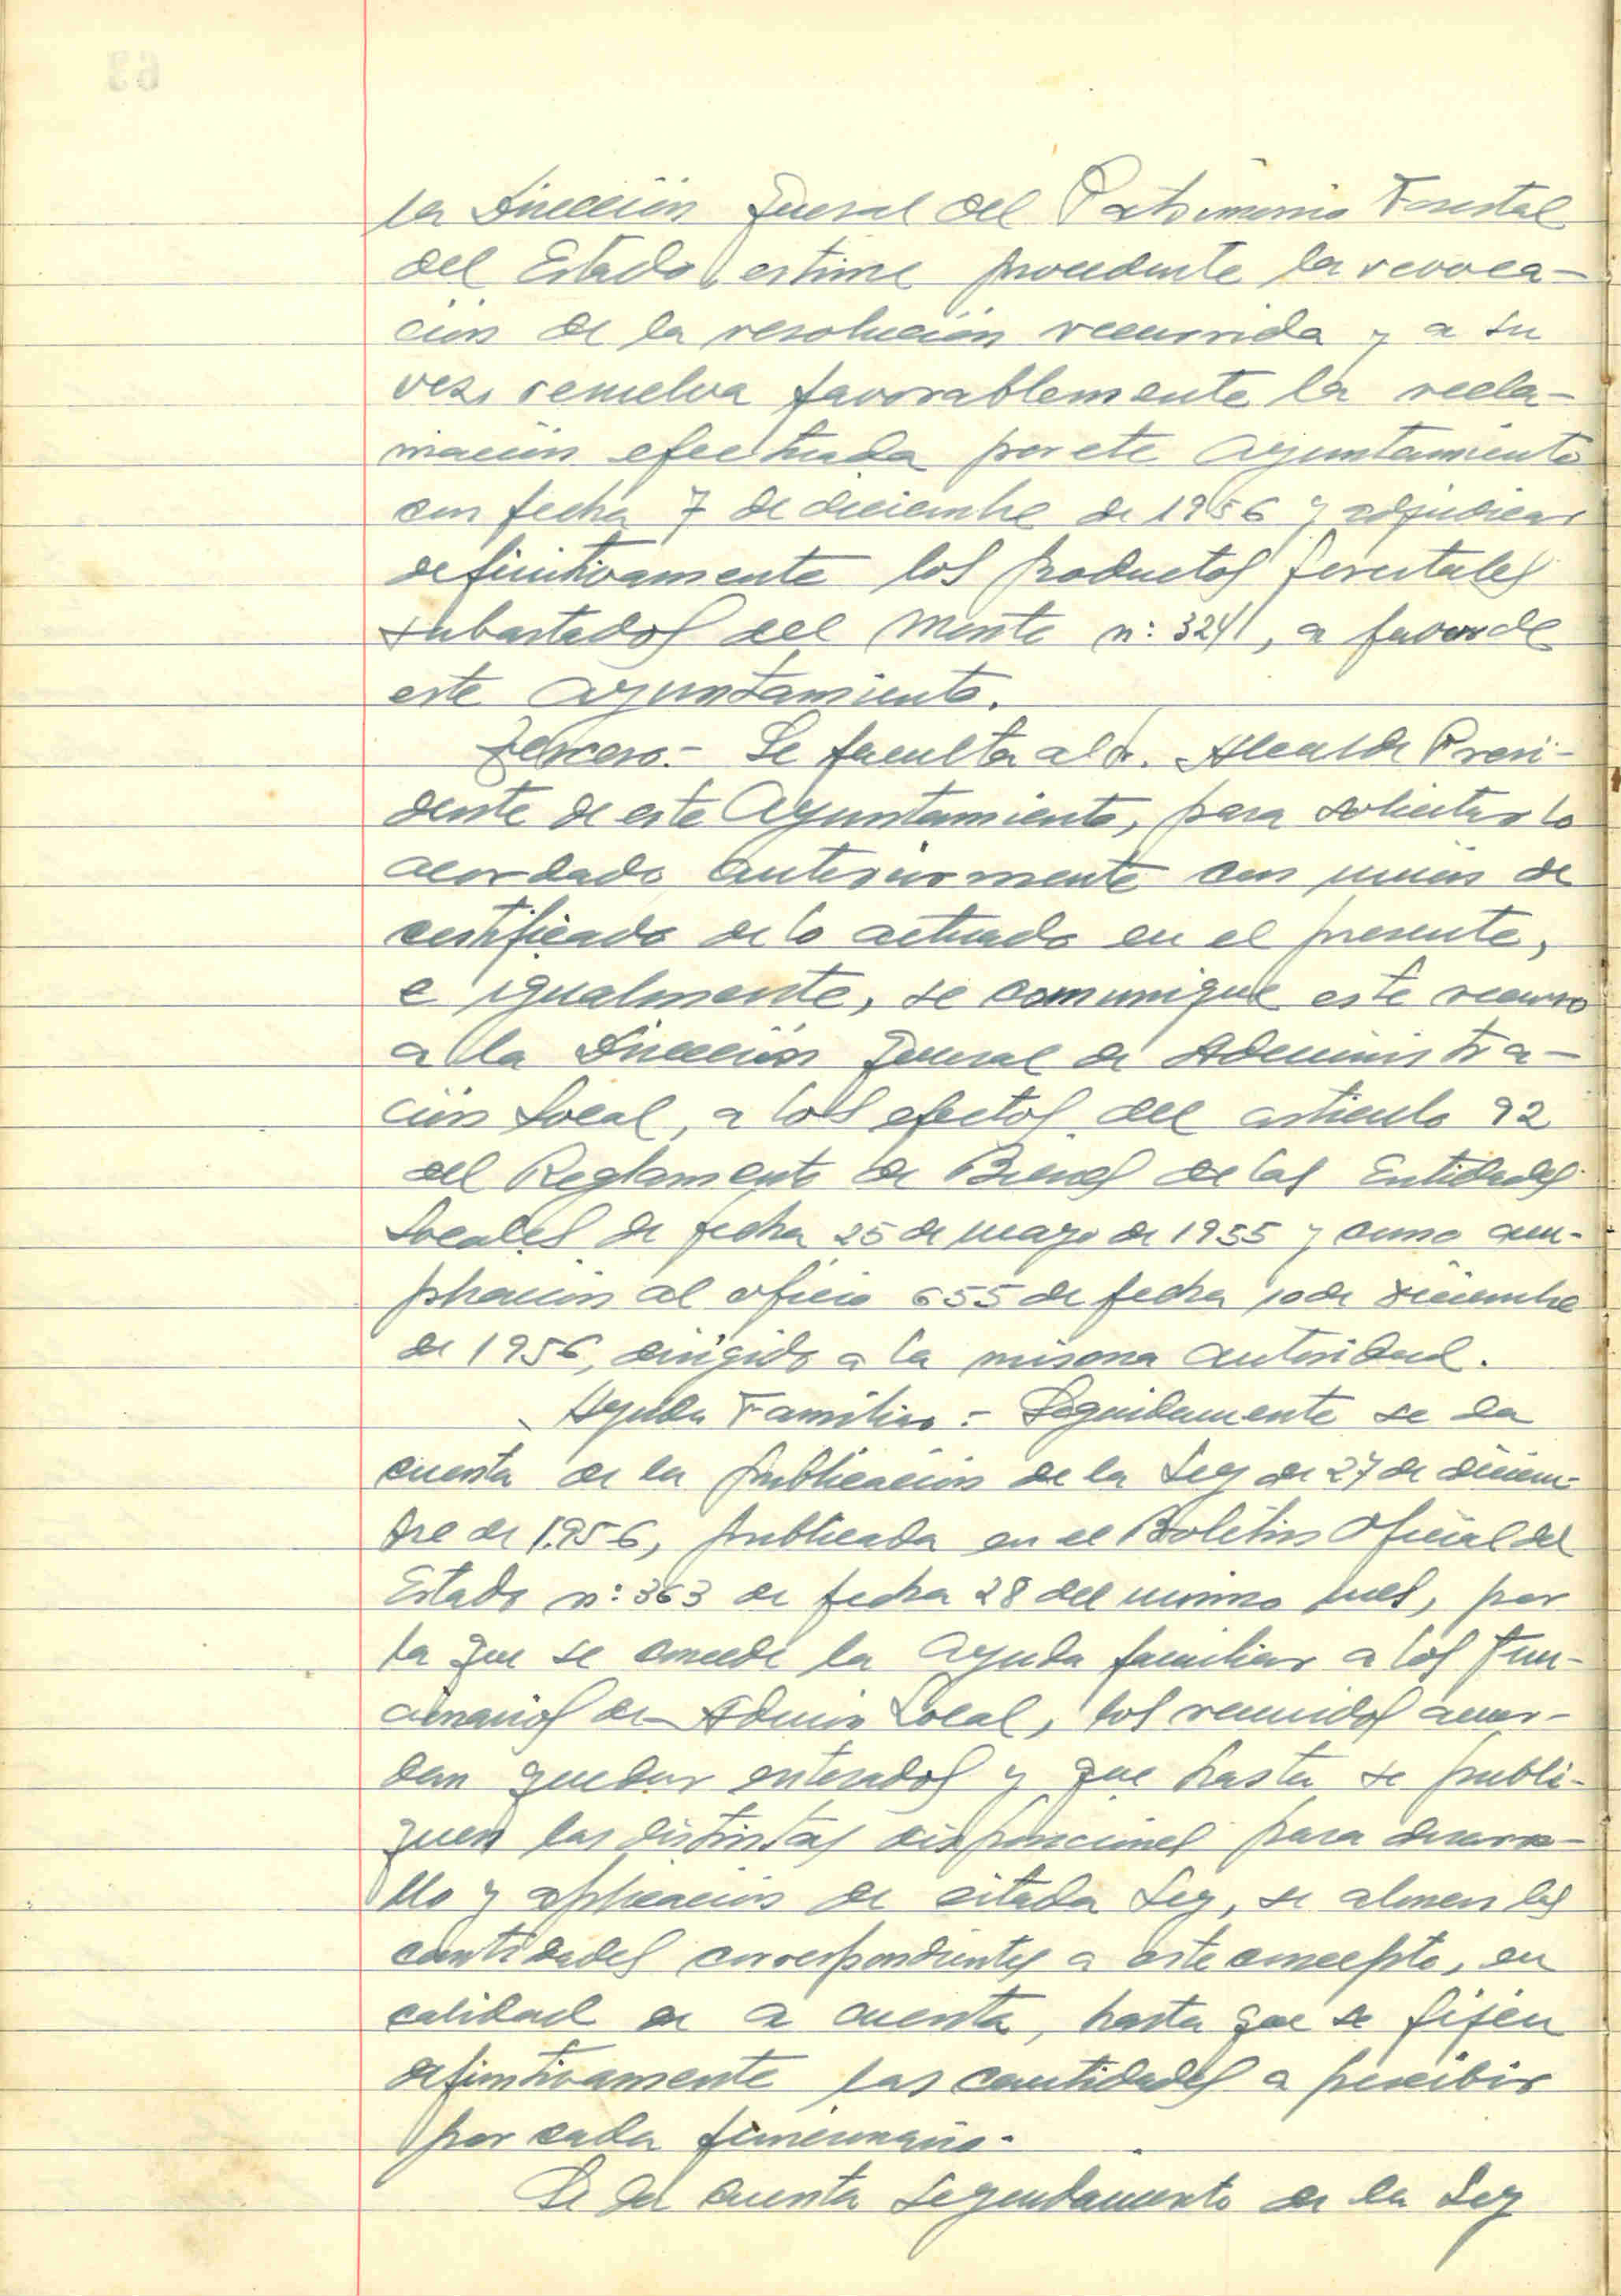 la Dirección General del Patrimonio Forestal
del Estado, estime procedente la revoca-
ción de la resolución recurrida y a su
vez, resuelva favorablemente la recla-
mación efectuada por este Ayuntamiento
con fecha 7 de diciembre de 1956 y adjudicar
definitivamente los productos forestales
subastados del Monte n: 324, a favor de
este Ayuntamiento.
Tercero.- Se faculta al Sr. Alcalde Presi-
dente de este Ayuntamiento, para solicitar lo
acordado anteriormente con unión de
certificado de lo actuado en el presente,
e igualmente, se comunique este recurso
a la Dirección General de Administra-
ción Local, a los efectos del artículo 92
del Reglamento de Bienes de las Entidades
Locales de fecha 25 de mayo de 1955 y como am-
pliación al oficio 655 de fecha 10 de diciembre
de 1956, dirigido a la misma autoridad.
Ayuda Familiar.- Seguidamente se da
cuenta de la publicación de la Ley de 27 de diciem-
bre de 1.956, publicada en el Boletín Oficial del
Estado n: 363 de fecha 28 del mismo mes, por
la que se concede la ayuda familiar a los fun-
cionarios de Admin Local, los reunidos acuer-
dan quedar enterados y que hasta se publi-
quen las distintas disposiciones para desarro-
llo y aplicación de citada Ley, se abonen las
cantidades correspondientes a este concepto, en
calidad de a cuenta, hasta que se fijen
definitivamente las cantidades a percibir
por cada funcionario.
Se da cuenta seguidamente de la Ley